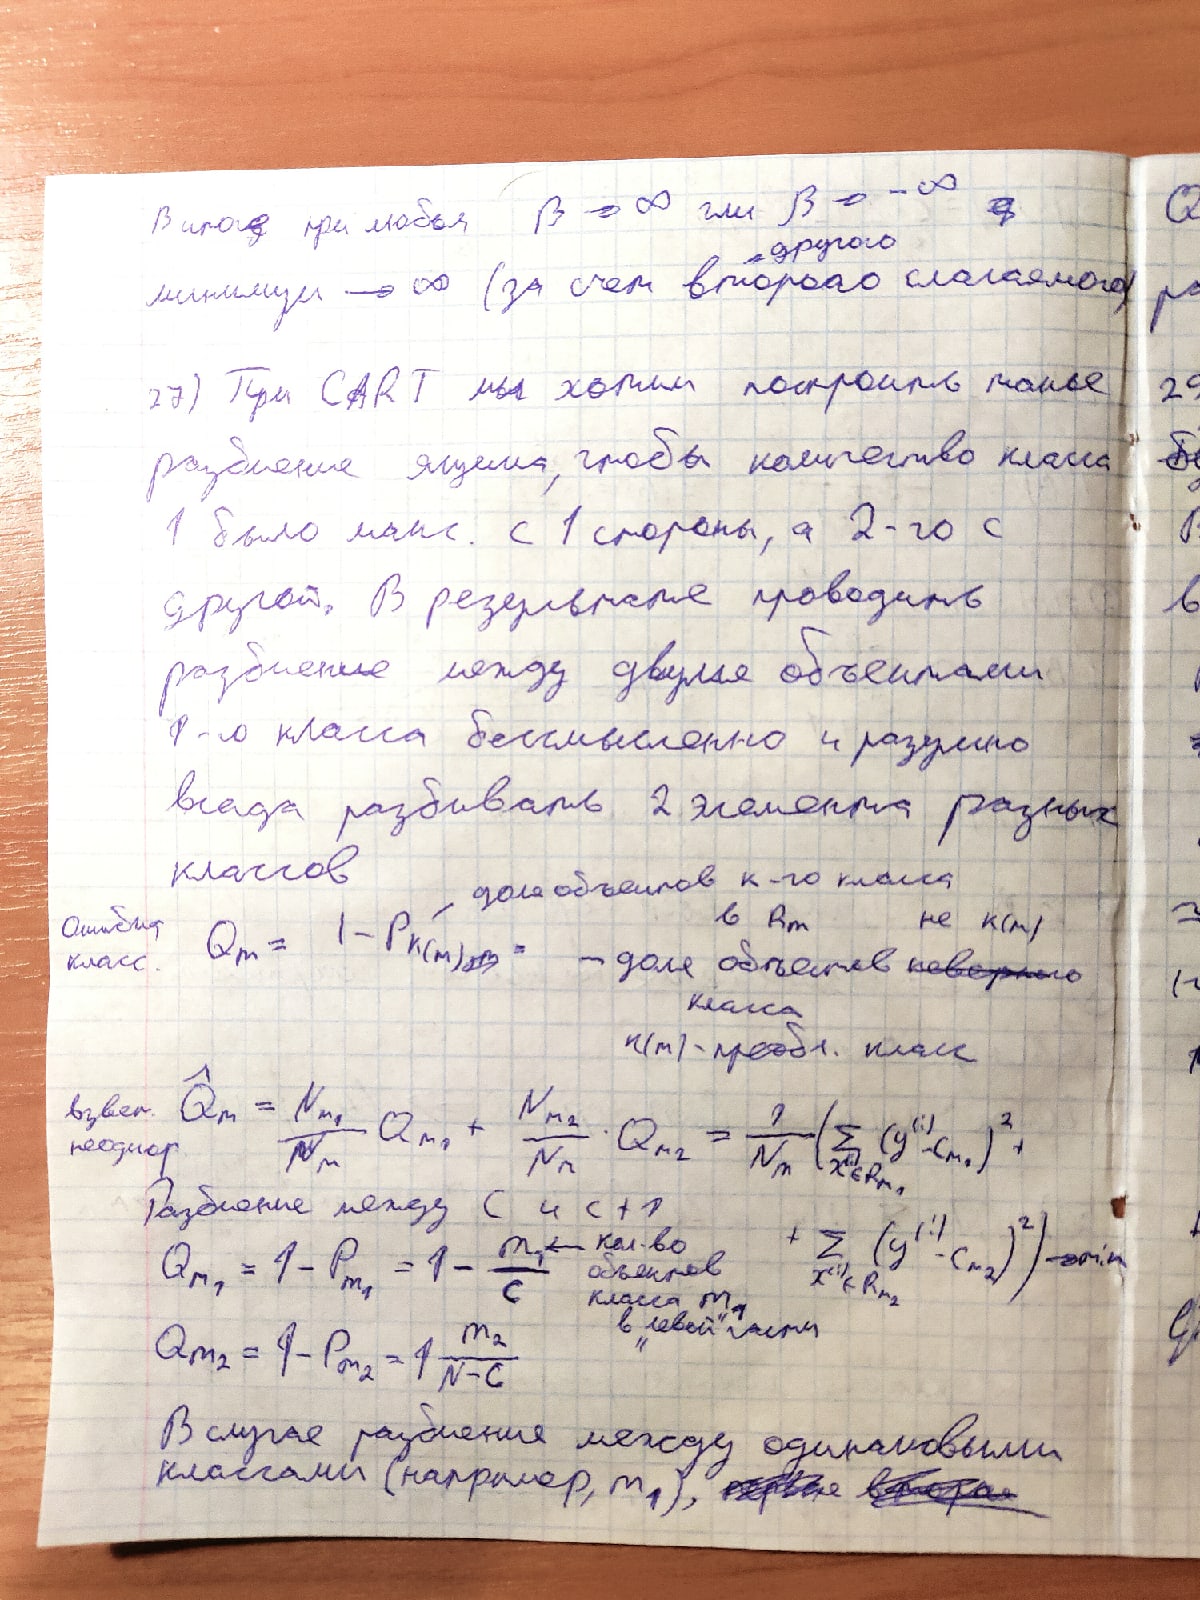 В итоге при любых β → ∞ или β → -∞
другого
минимум → ∞ (за счет второго слагаемого)
27) При CART мы хотим построить такое
разбиение ящика, чтобы количество класса
1 было макс. с 1 стороны, а 2-го с
другой. В результате проводить
разбиение между двумя объектами
1-го класса бессмысленно и разумно
всегда разбивать 2 элемента разных
классов
доля объектов к-го класса
в Rm не k(m)
Ошибка класс. Qm = 1 - Pk(m) =
- доля объектов неверного
класса
k(m) - преобл. класс
взвеш. неоднор. Q̂m = Nm₁/Nm Qm₁ + Nm₂/Nm · Qm₂ = 1/Nm (∑ x⁽ⁱ⁾∈Rm₁ (y⁽ⁱ⁾ - Cm₁)² +
Разбиение между C и C+1
+ ∑ x⁽ⁱ⁾∈Rm₂ (y⁽ⁱ⁾ - Cm₂)²) → min
Qm₁ = 1 - Pm₁ = 1 - m₁/C ← кол-во
объектов
класса m₁
в "левой" части
Qm₂ = 1 - Pm₂ = 1 m₂/N-C
В случае разбиения между одинаковыми
классами (например, m₁),
Q
29